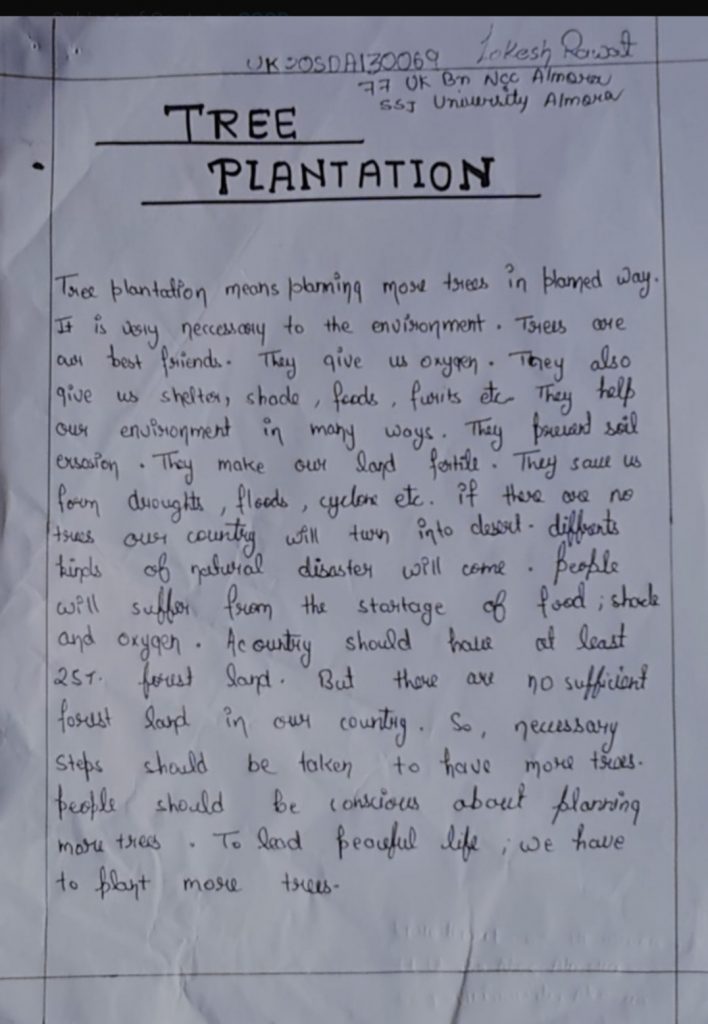 UK20SDA130069 Lokesh Rawat
77 UK Bn Ncc Almora
SSJ University Almora
TREE
PLANTATION
Tree plantation means planning more trees in planed way.
It is very neccessary to the environment. Trees are
our best friends. They give us oxygen. They also
give us shelter, shade, foods, furits etc. They help
our environment in many ways. They prevent soil
erosion. They make our land fertile. They save us
form droughts, floods, cyclone etc. if there are no
trees our country will turn into desert. diffrents
kinds of natural disaster will come. people
will suffer from the startage of food, shade
and oxygen. A country should have at least
25%. forest land. But there are no sufficient
forest land in our country. So, necessary
steps should be taken to have more trees.
people should be conscious about planning
more trees. To lead peaceful life, we have
to plant more trees.